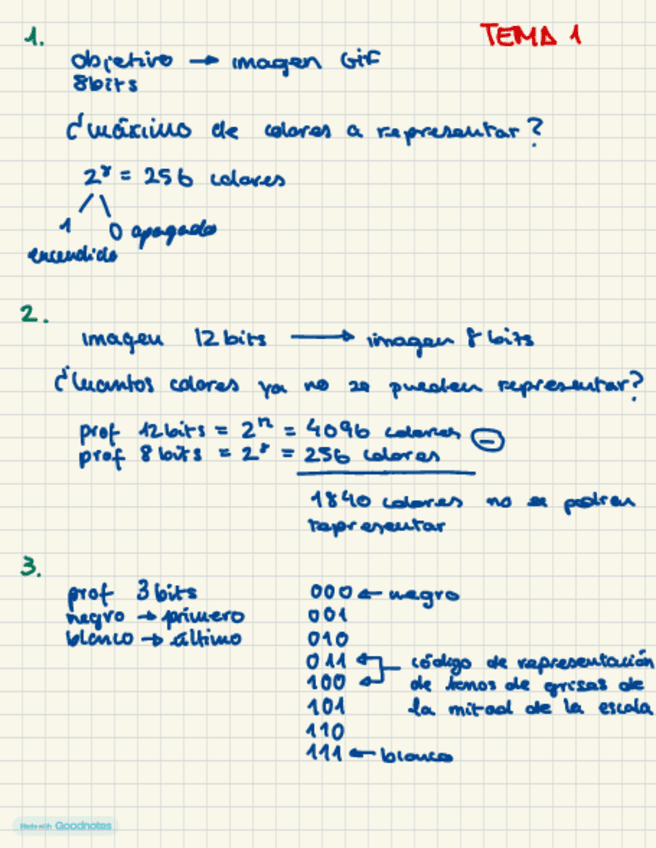 TEMA 1
1.
objetivo → imagen GIF
8bits
¿máximo de colores a representar?
2⁸ = 256 colores
1 0 apagado
encendido
2.
imagen 12 bits → imagen 8 bits
¿Cuantos colores ya no se pueden representar?
prof 12bits = 2¹² = 4096 colores −
prof 8 bits = 2⁸ = 256 colores
1840 colores no se podran
representar
3.
prof 3 bits
negro → primero
blanco → último
000 ← negro
001
010
011 ← código de representación
100 ← de tonos de grises de
101 la mitad de la escala
110
111 ← blanco
Made with Goodnotes